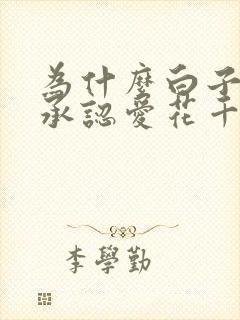 為什麼白子
承認愛花千
李學勤